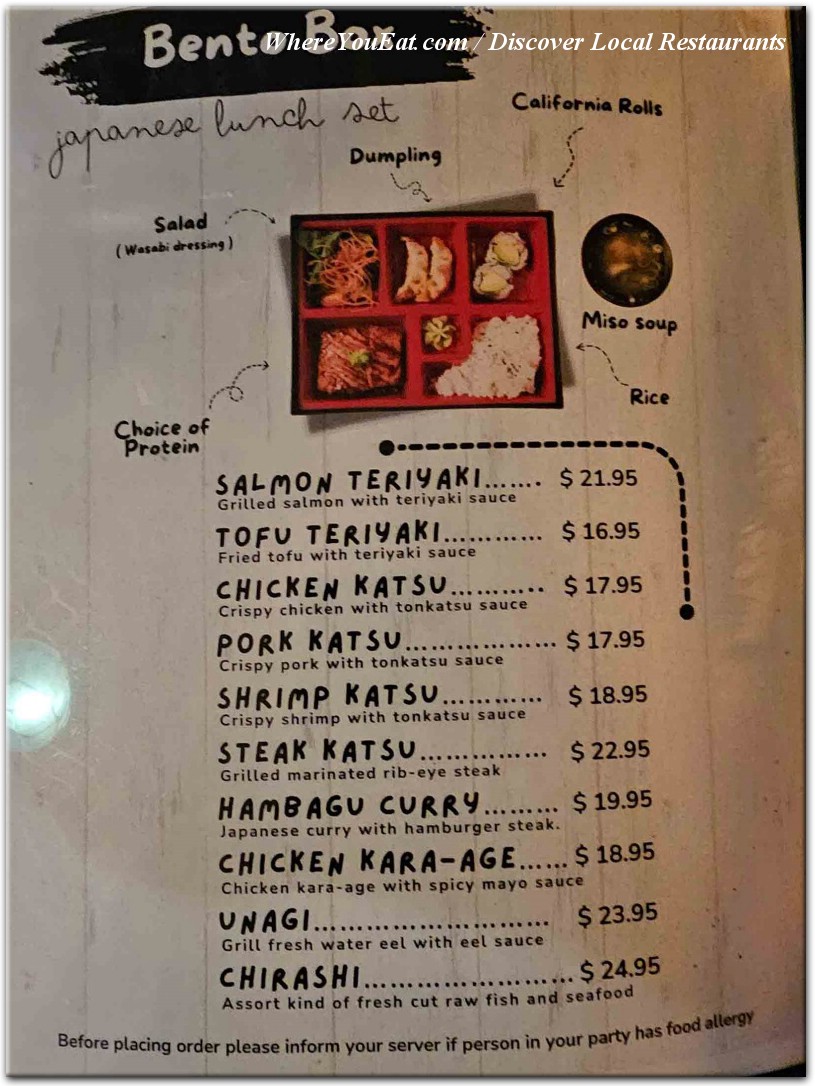 Bento Box
WhereYouEat.com / Discover Local Restaurants
japanese lunch set
California Rolls
Dumpling
Salad
( Wasabi dressing )
Miso soup
Rice
Choice of
Protein
SALMON TERIYAKI....... $ 21.95
Grilled salmon with teriyaki sauce
TOFU TERIYAKI............ $ 16.95
Fried tofu with teriyaki sauce
CHICKEN KATSU........... $ 17.95
Crispy chicken with tonkatsu sauce
PORK KATSU.................. $ 17.95
Crispy pork with tonkatsu sauce
SHRIMP KATSU............ $ 18.95
Crispy shrimp with tonkatsu sauce
STEAK KATSU............... $ 22.95
Grilled marinated rib-eye steak
HAMBAGU CURRY......... $ 19.95
Japanese curry with hamburger steak.
CHICKEN KARA-AGE...... $ 18.95
Chicken kara-age with spicy mayo sauce
UNAGI........................... $ 23.95
Grill fresh water eel with eel sauce
CHIRASHI........................ $ 24.95
Assort kind of fresh cut raw fish and seafood
Before placing order please inform your server if person in your party has food allergy